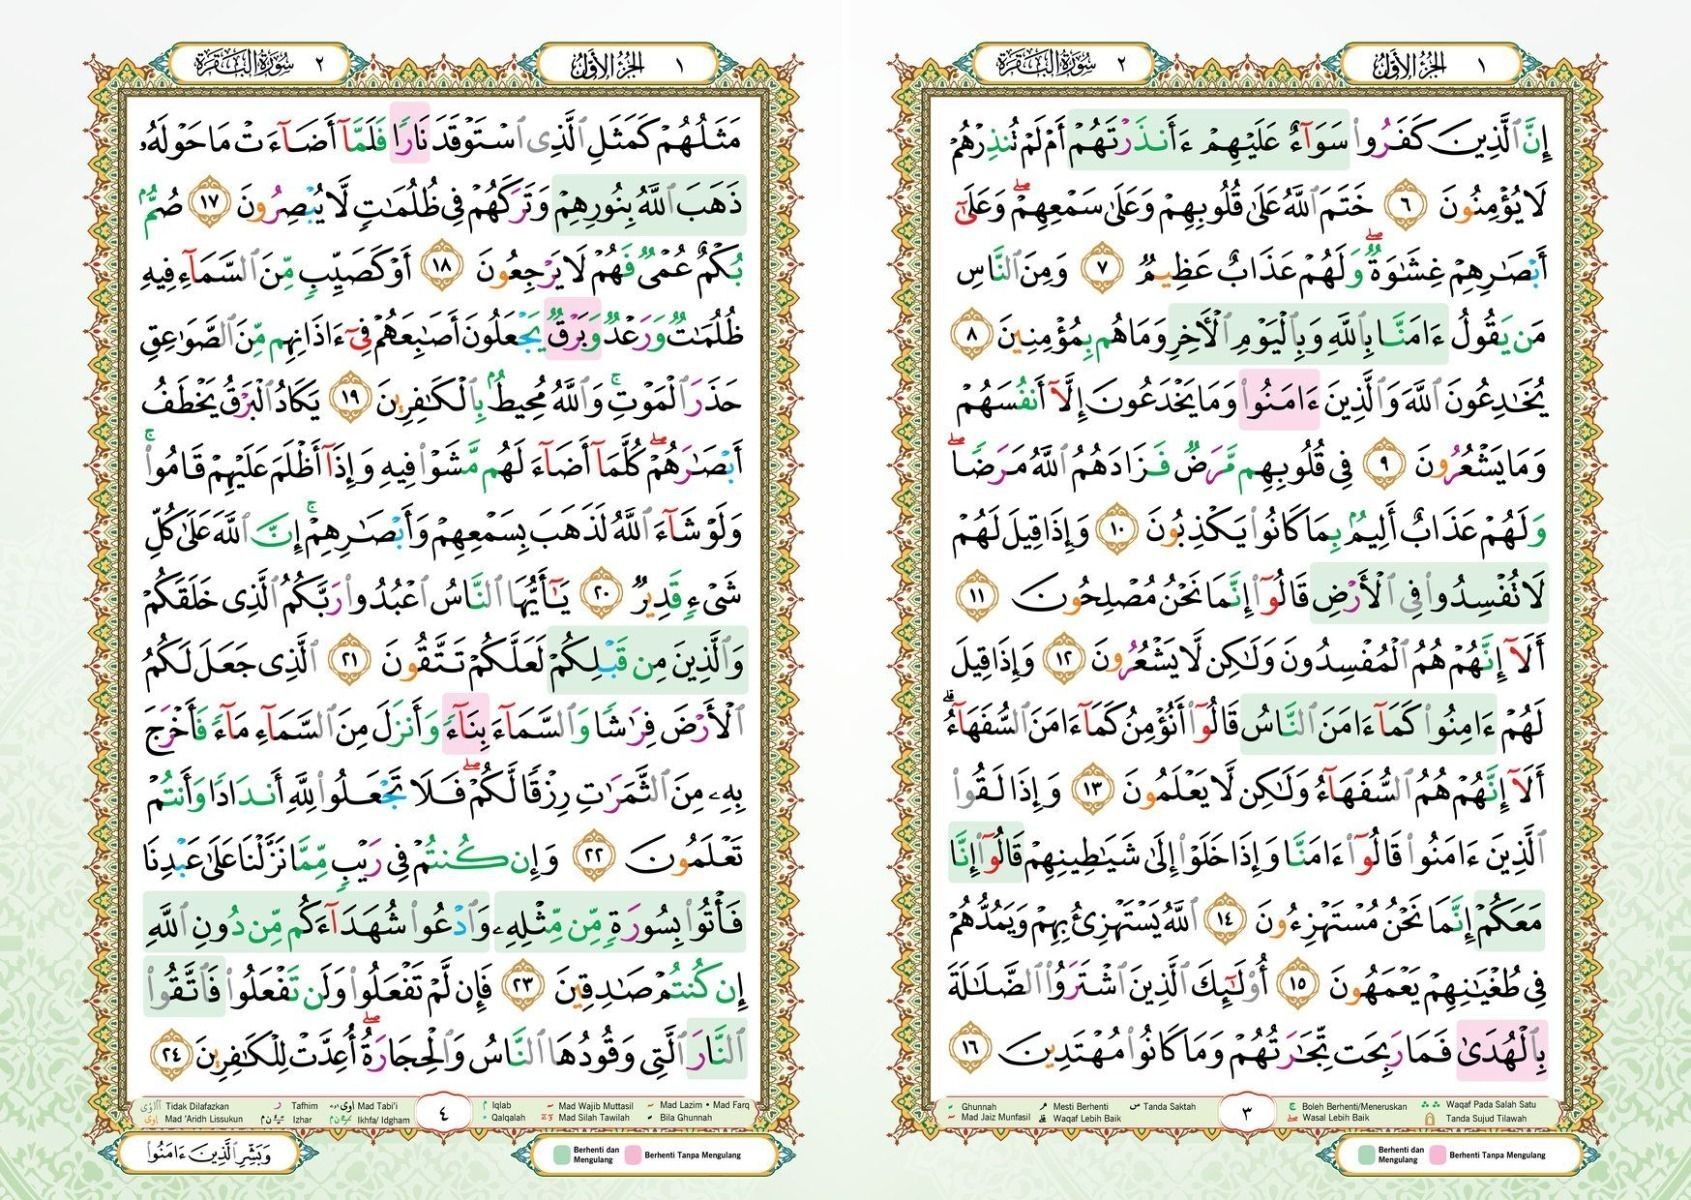 ١ الجزء الأول
٢ سورة البقرة
إِنَّ ٱلَّذِينَ كَفَرُوا۟ سَوَآءٌ عَلَيْهِمْ ءَأَنذَرْتَهُمْ أَمْ لَمْ تُنذِرْهُمْ
لَا يُؤْمِنُونَ ٦ خَتَمَ ٱللَّهُ عَلَىٰ قُلُوبِهِمْ وَعَلَىٰ سَمْعِهِمْ ۖ وَعَلَىٰٓ
أَبْصَـٰرِهِمْ غِشَـٰوَةٌ ۖ وَلَهُمْ عَذَابٌ عَظِيمٌ ٧ وَمِنَ ٱلنَّاسِ
مَن يَقُولُ ءَامَنَّا بِٱللَّهِ وَبِٱلْيَوْمِ ٱلْـَٔاخِرِ وَمَا هُم بِمُؤْمِنِينَ ٨
يُخَـٰدِعُونَ ٱللَّهَ وَٱلَّذِينَ ءَامَنُوا۟ وَمَا يَخْدَعُونَ إِلَّآ أَنفُسَهُمْ
وَمَا يَشْعُرُونَ ٩ فِى قُلُوبِهِم مَّرَضٌ فَزَادَهُمُ ٱللَّهُ مَرَضًا ۖ
وَلَهُمْ عَذَابٌ أَلِيمٌۢ بِمَا كَانُوا۟ يَكْذِبُونَ ١٠ وَإِذَا قِيلَ لَهُمْ
لَا تُفْسِدُوا۟ فِى ٱلْأَرْضِ قَالُوٓا۟ إِنَّمَا نَحْنُ مُصْلِحُونَ ١١
أَلَآ إِنَّهُمْ هُمُ ٱلْمُفْسِدُونَ وَلَـٰكِن لَّا يَشْعُرُونَ ١٢ وَإِذَا قِيلَ
لَهُمْ ءَامِنُوا۟ كَمَآ ءَامَنَ ٱلنَّاسُ قَالُوٓا۟ أَنُؤْمِنُ كَمَآ ءَامَنَ ٱلسُّفَهَآءُ ۗ
أَلَآ إِنَّهُمْ هُمُ ٱلسُّفَهَآءُ وَلَـٰكِن لَّا يَعْلَمُونَ ١٣ وَإِذَا لَقُوا۟
ٱلَّذِينَ ءَامَنُوا۟ قَالُوٓا۟ ءَامَنَّا وَإِذَا خَلَوْا۟ إِلَىٰ شَيَـٰطِينِهِمْ قَالُوٓا۟ إِنَّا
مَعَكُمْ إِنَّمَا نَحْنُ مُسْتَهْزِءُونَ ١٤ ٱللَّهُ يَسْتَهْزِئُ بِهِمْ وَيَمُدُّهُمْ
فِى طُغْيَـٰنِهِمْ يَعْمَهُونَ ١٥ أُو۟لَـٰٓئِكَ ٱلَّذِينَ ٱشْتَرَوُا۟ ٱلضَّلَـٰلَةَ
بِٱلْهُدَىٰ فَمَا رَبِحَت تِّجَـٰرَتُهُمْ وَمَا كَانُوا۟ مُهْتَدِينَ ١٦
Ghunnah Mesti Berhenti Tanda Saktah ٣ Boleh Berhenti/Meneruskan Waqaf Pada Salah Satu
Mad Jaiz Munfasil Waqaf Lebih Baik Wasal Lebih Baik Tanda Sujud Tilawah
Berhenti dan Mengulang Berhenti Tanpa Mengulang
١ الجزء الأول
٢ سورة البقرة
مَثَلُهُمْ كَمَثَلِ ٱلَّذِى ٱسْتَوْقَدَ نَارًا فَلَمَّآ أَضَآءَتْ مَا حَوْلَهُۥ
ذَهَبَ ٱللَّهُ بِنُورِهِمْ وَتَرَكَهُمْ فِى ظُلُمَـٰتٍ لَّا يُبْصِرُونَ ١٧ صُمٌّۢ
بُكْمٌ عُمْىٌ فَهُمْ لَا يَرْجِعُونَ ١٨ أَوْ كَصَيِّبٍ مِّنَ ٱلسَّمَآءِ فِيهِ
ظُلُمَـٰتٌ وَرَعْدٌ وَبَرْقٌ يَجْعَلُونَ أَصَـٰبِعَهُمْ فِىٓ ءَاذَانِهِم مِّنَ ٱلصَّوَٰعِقِ
حَذَرَ ٱلْمَوْتِ ۚ وَٱللَّهُ مُحِيطٌۢ بِٱلْكَـٰفِرِينَ ١٩ يَكَادُ ٱلْبَرْقُ يَخْطَفُ
أَبْصَـٰرَهُمْ ۖ كُلَّمَآ أَضَآءَ لَهُم مَّشَوْا۟ فِيهِ وَإِذَآ أَظْلَمَ عَلَيْهِمْ قَامُوا۟ ۚ
وَلَوْ شَآءَ ٱللَّهُ لَذَهَبَ بِسَمْعِهِمْ وَأَبْصَـٰرِهِمْ ۚ إِنَّ ٱللَّهَ عَلَىٰ كُلِّ
شَىْءٍ قَدِيرٌ ٢٠ يَـٰٓأَيُّهَا ٱلنَّاسُ ٱعْبُدُوا۟ رَبَّكُمُ ٱلَّذِى خَلَقَكُمْ
وَٱلَّذِينَ مِن قَبْلِكُمْ لَعَلَّكُمْ تَتَّقُونَ ٢١ ٱلَّذِى جَعَلَ لَكُمُ
ٱلْأَرْضَ فِرَٰشًا وَٱلسَّمَآءَ بِنَآءً وَأَنزَلَ مِنَ ٱلسَّمَآءِ مَآءً فَأَخْرَجَ
بِهِۦ مِنَ ٱلثَّمَرَٰتِ رِزْقًا لَّكُمْ ۖ فَلَا تَجْعَلُوا۟ لِلَّهِ أَندَادًا وَأَنتُمْ
تَعْلَمُونَ ٢٢ وَإِن كُنتُمْ فِى رَيْبٍ مِّمَّا نَزَّلْنَا عَلَىٰ عَبْدِنَا
فَأْتُوا۟ بِسُورَةٍ مِّن مِّثْلِهِۦ وَٱدْعُوا۟ شُهَدَآءَكُم مِّن دُونِ ٱللَّهِ
إِن كُنتُمْ صَـٰدِقِينَ ٢٣ فَإِن لَّمْ تَفْعَلُوا۟ وَلَن تَفْعَلُوا۟ فَٱتَّقُوا۟
ٱلنَّارَ ٱلَّتِى وَقُودُهَا ٱلنَّاسُ وَٱلْحِجَارَةُ ۖ أُعِدَّتْ لِلْكَـٰفِرِينَ ٢٤
Tidak Dilafazkan Tafhim Mad Tabi'i ٤ Iqlab Mad Wajib Muttasil Mad Lazim • Mad Farq
Mad 'Aridh Lissukun Izhar Ikhfa/ Idgham Qalqalah Mad Silah Tawilah Bila Ghunnah
Berhenti dan Mengulang Berhenti Tanpa Mengulang
وَبَشِّرِ ٱلَّذِينَ ءَامَنُوا۟